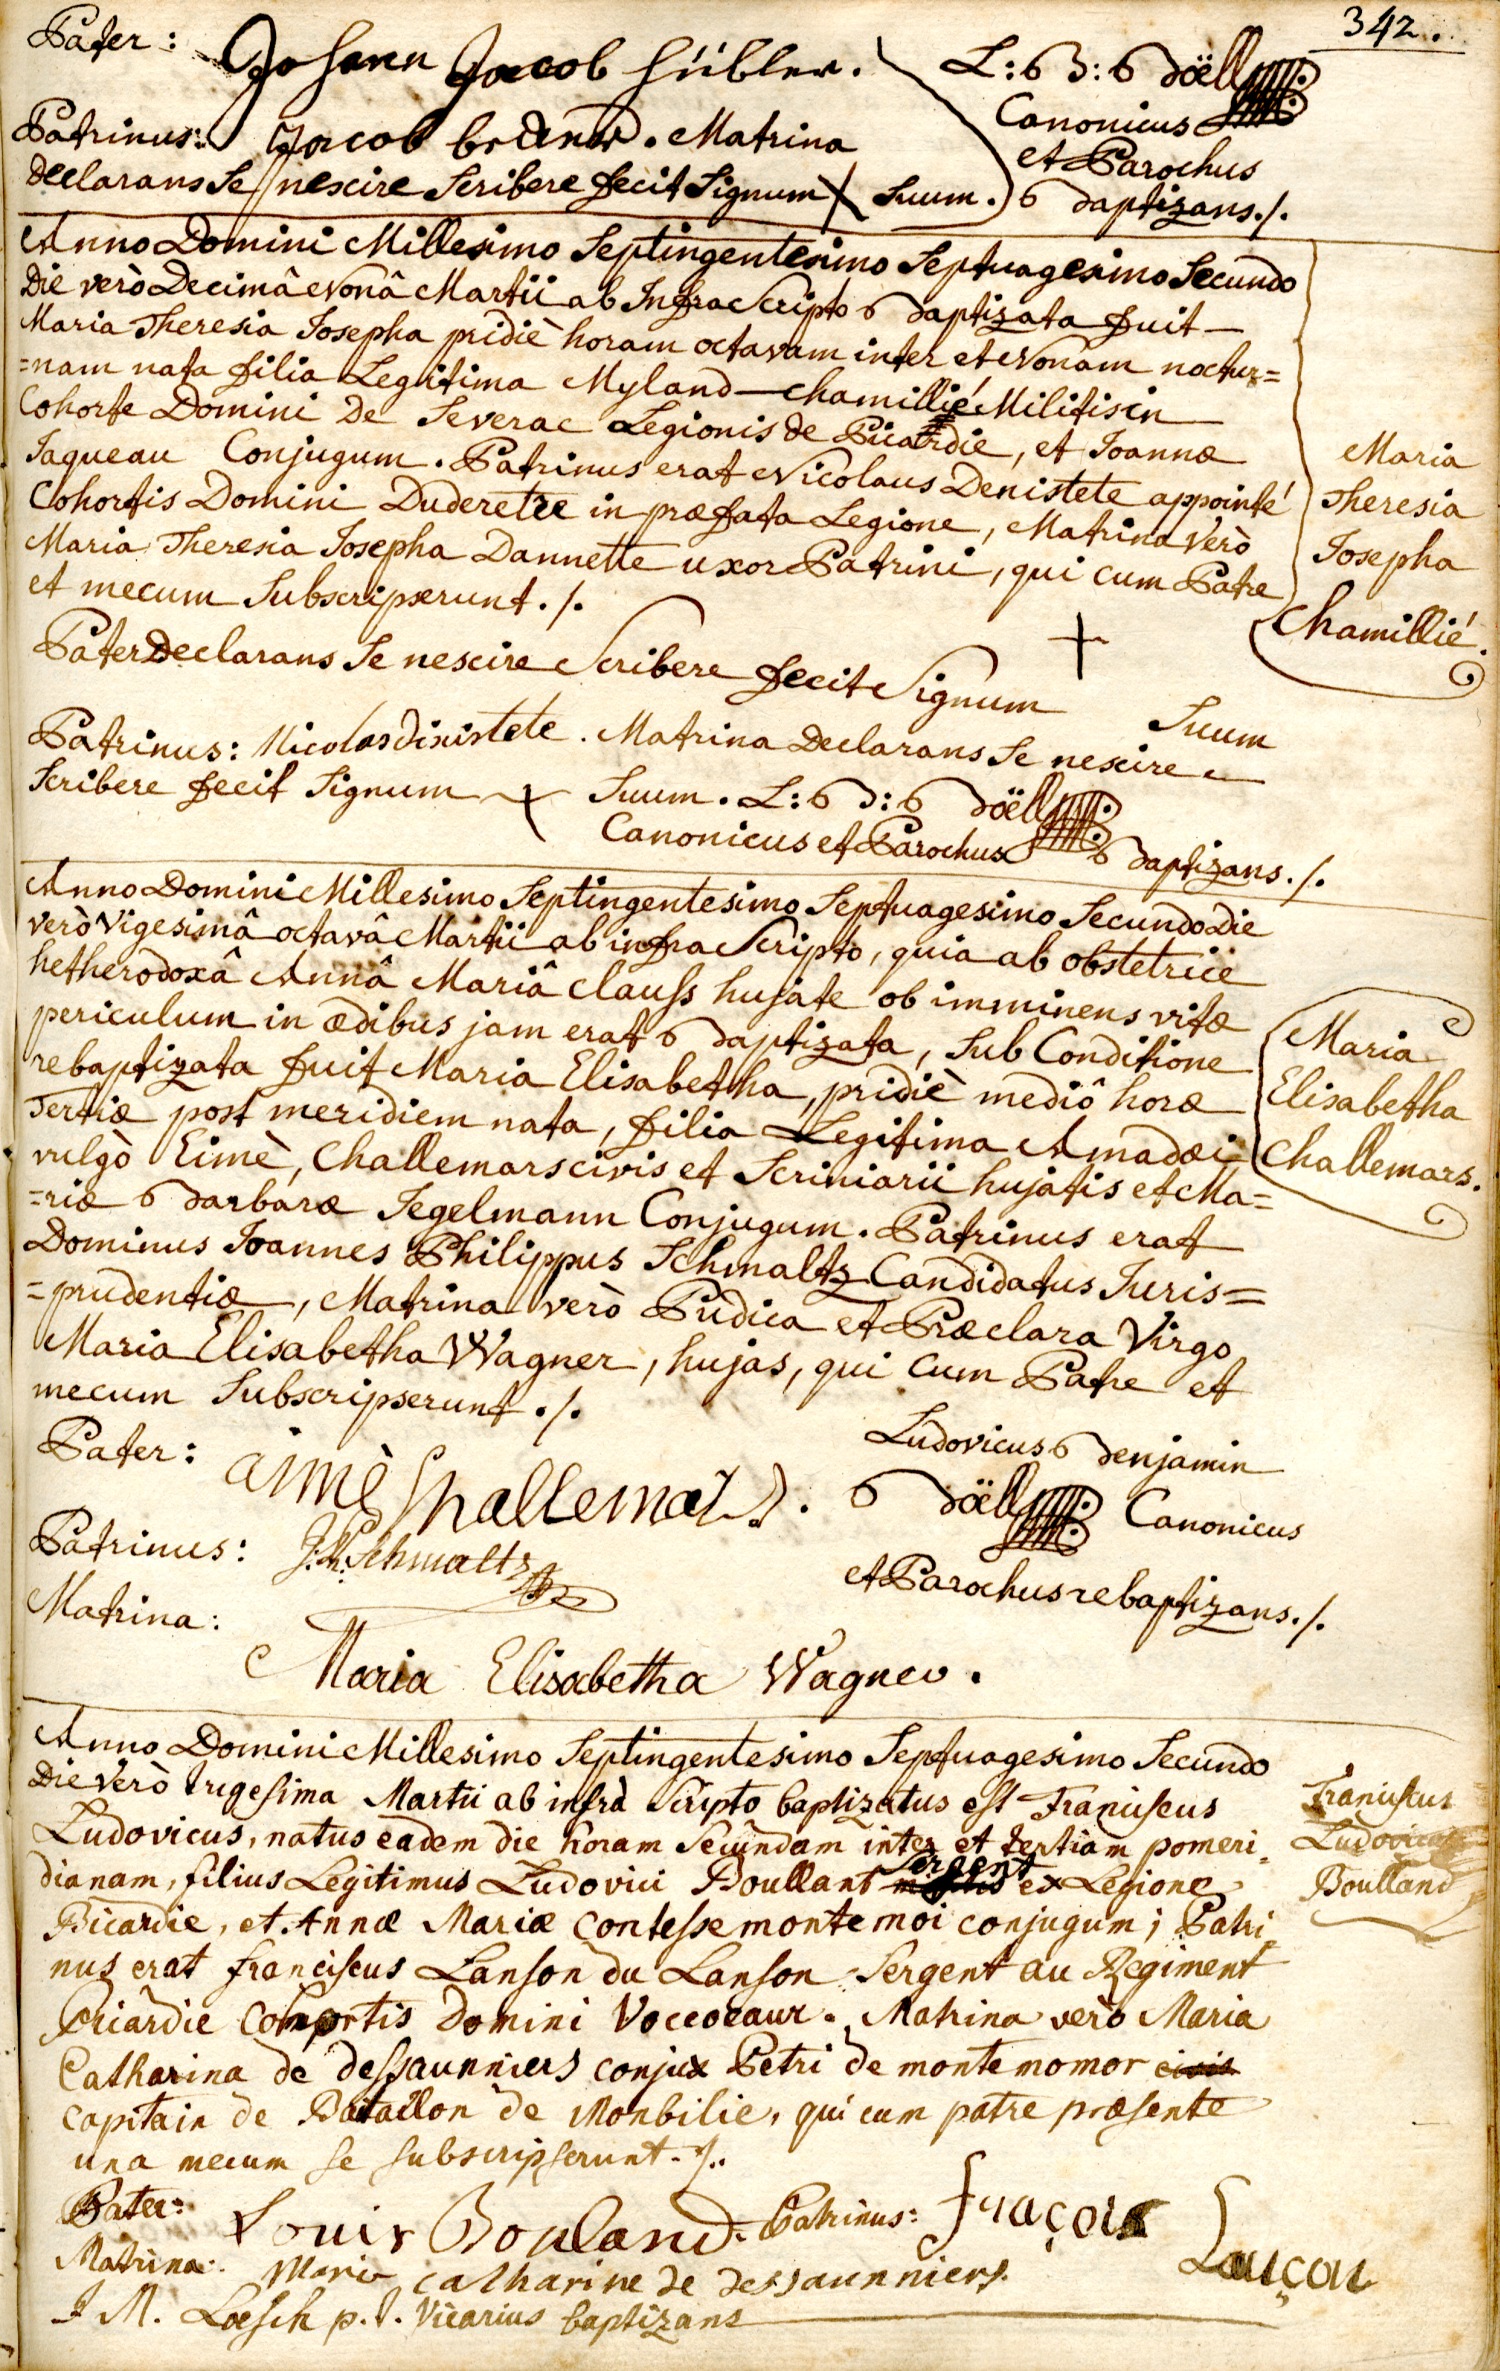 342.
Pater: Johann Jacob Hübler.
L: B: Böell
Canonicus
et Parochus
Baptizans ./.
Patrinus: Jacob Matrina
Declarans Se nescire Scribere fecit Signum X Suum.
Anno Domini Millesimo Septingentesimo Septuagesimo Secundo
Die verò Decimâ Nonâ Martii ab InfraScripto Baptizata fuit
Maria Theresia Josepha pridiè horam octavam inter et Nonam noctur=
=nam nata filia Legitima Myland Chamillié Militis in
Cohorte Domini De Severac Legionis de Picardie, et Joannæ
Jaqueau Conjugum. Patrinus erat Nicolaus Denistete appointé
Cohortis Domini Duderetze in præfata Legione, Matrina Verò
Maria Theresia Josepha Dannette uxor Patrini, qui cum Patre
et mecum Subscripserunt ./.
Maria
Theresia
Josepha
Chamillié.
Pater Declarans Se nescire Scribere fecit Signum + Suum
Patrinus: Nicolas dinistete. Matrina Declarans Se nescire
Scribere fecit Signum + Suum. L: B: Böell
Canonicus et Parochus Baptizans ./.
Anno Domini Millesimo Septingentesimo Septuagesimo Secundo Die
verò Vigesimâ octavâ Martii ab infraScripto, quia ab obstetrice
hetherodoxâ Annâ Mariâ Clauss hujate ob imminens vitæ
periculum in ædibus jam erat Baptizata, Sub Conditione
rebaptizata fuit Maria Elisabetha, pridiè mediô horæ
Tertiæ post meridiem nata, filia Legitima Amadæi
vulgò Eimè, Challemars civis et Scriniarii hujatis et Ma=
=riæ Barbaræ Segelmann Conjugum. Patrinus erat
Dominus Joannes Philippus Schmaltz Candidatus Juris=
=prudentiæ, Matrina verò Pudica et Præclara Virgo
Maria Elisabetha Wagner, hujas, qui Cum Patre et
mecum Subscripserunt ./.
Maria
Elisabetha
Challemars.
Pater: aimè Challemars.
Ludovicus Benjamin
Böell Canonicus
et Parochus rebaptizans ./.
Patrinus: J. Ph. Schmaltz
Matrina:
Maria Elisabetha Wagner.
Anno Domini Millesimo Septingentesimo Septuagesimo Secundo
Die Verò trigesima Martii ab infrà Scripto baptizatus est Franciscus
Ludovicus, natus eadem die horam Secundam inter et tertiam pomeri=
dianam, filius Legitimus Ludovici Boullant Sergent ex Legione
Picardie, et Annæ Mariæ Contesse montemoi conjugum; Patri=
nus erat franciscus Lanson du Lanson Sergent au Regiment
Picardie Cohortis Domini Voccoeaux. Matrina verò Maria
Catharina de dessaunniers conjux Petri de montemomor civis
Capitain de Bataillon de Monbilie, qui cum patre præsente
una mecum se subscripserunt ./.
Franciscus
Ludovicus
Boulland
Pater: Louis Bouland. Patrinus: fraçois Lauçon
Matrina: Marie catharine de dessaunniers.
J M. Loesch p. t. Vicarius baptizans